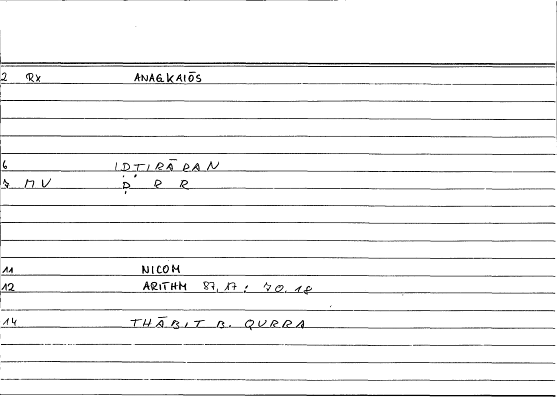 2 Rx ANAGKAIŌS
6 IḌTIRĀRAN
7 MV Ḍ R R
11 NICOM
12 ARITHM 87,17 : 70,18
14 THĀBIT B. QURRA